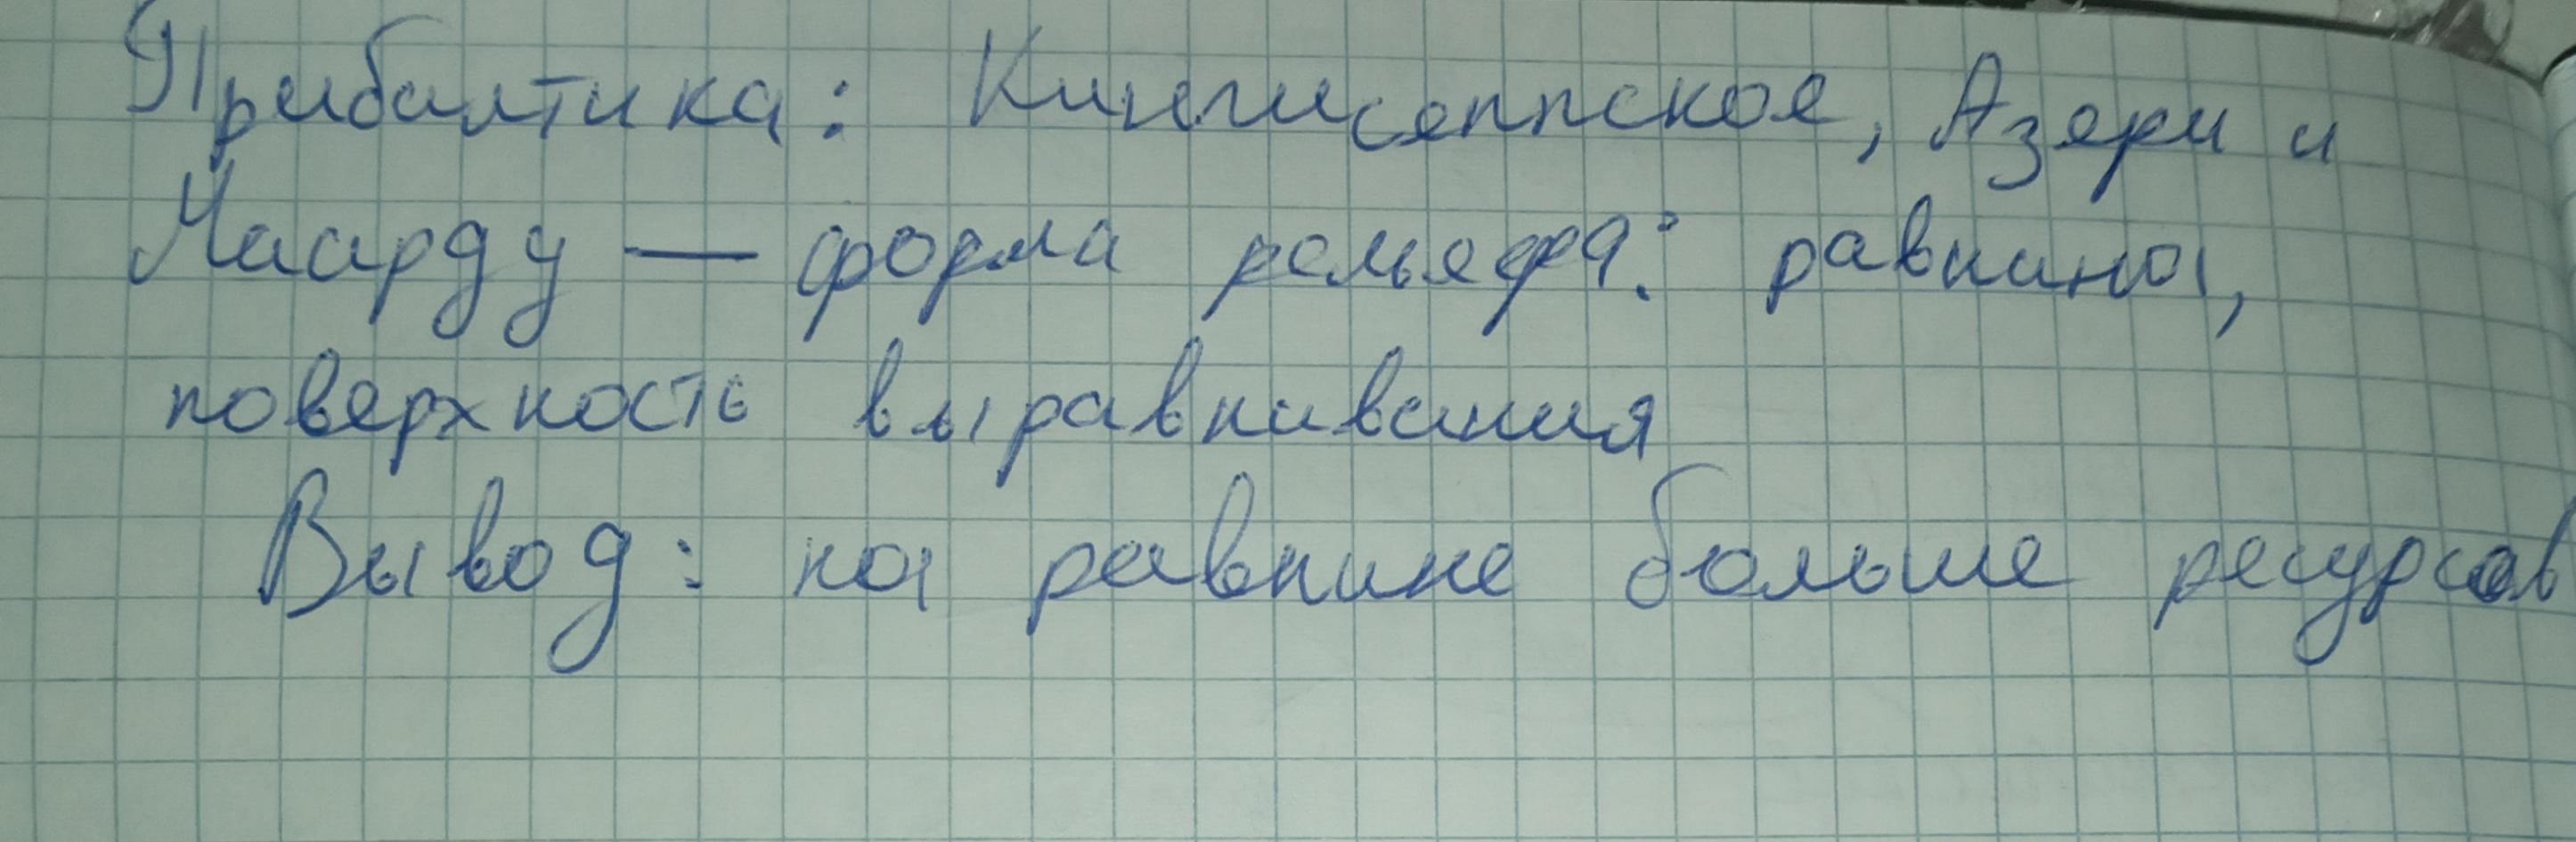 Прибалтика: Кингисеппское, Азери и
Маарду — форма рельефа: равнина,
поверхность выравнивания
Вывод: на равнине больше ресурсов